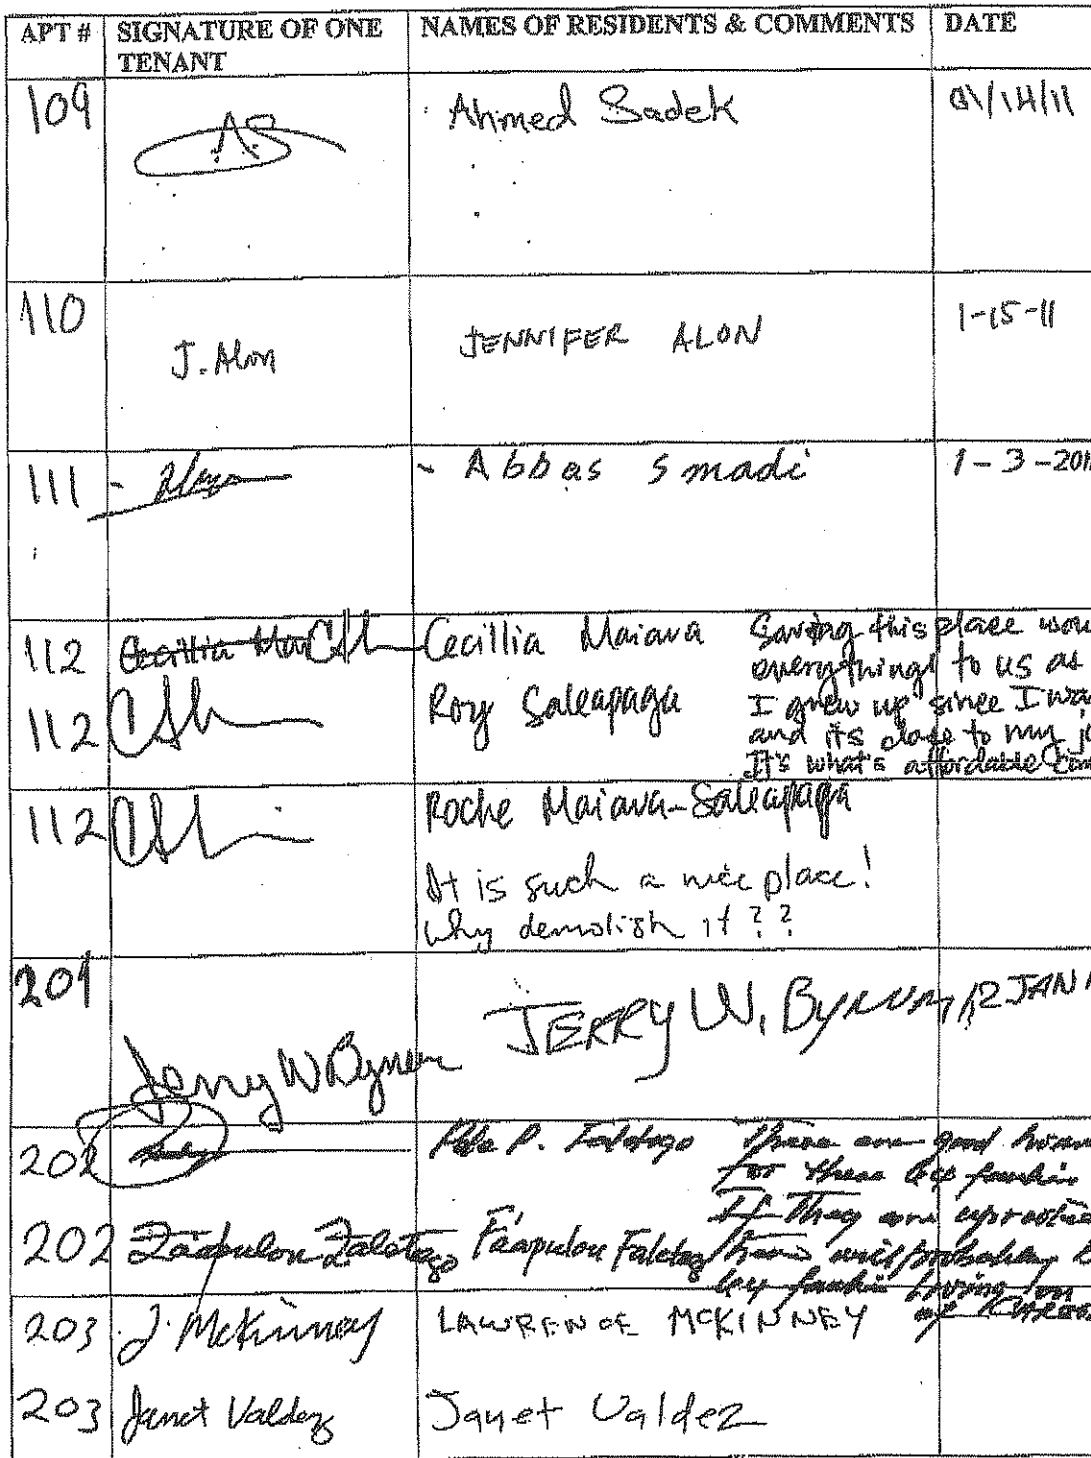 APT # SIGNATURE OF ONE TENANT NAMES OF RESIDENTS & COMMENTS DATE
109 AS Ahmed Sadek 01/14/11
110 J. Alon JENNIFER ALON 1-15-11
111 - - Abbas Smadi 1-3-201
112 Cecillia Maiava
Saving this place wou
everything to us as
I grew up since I wa
and its close to my j
It's what's affordable
112 Roy Saleapaga
112 Roche Maiava-Saleapaga
It is such a nice place!
Why demolish it ??
201 Jerry W Bynum JERRY W. BYNUM, 12 JAN
202 P. Falatago
These are good
for these
If They are
202 Faapulou Falatago Faapulou Falatago
will probably
living on
203 J. McKinney LAWRENCE MCKINNEY
203 Janet Valdez Janet Valdez